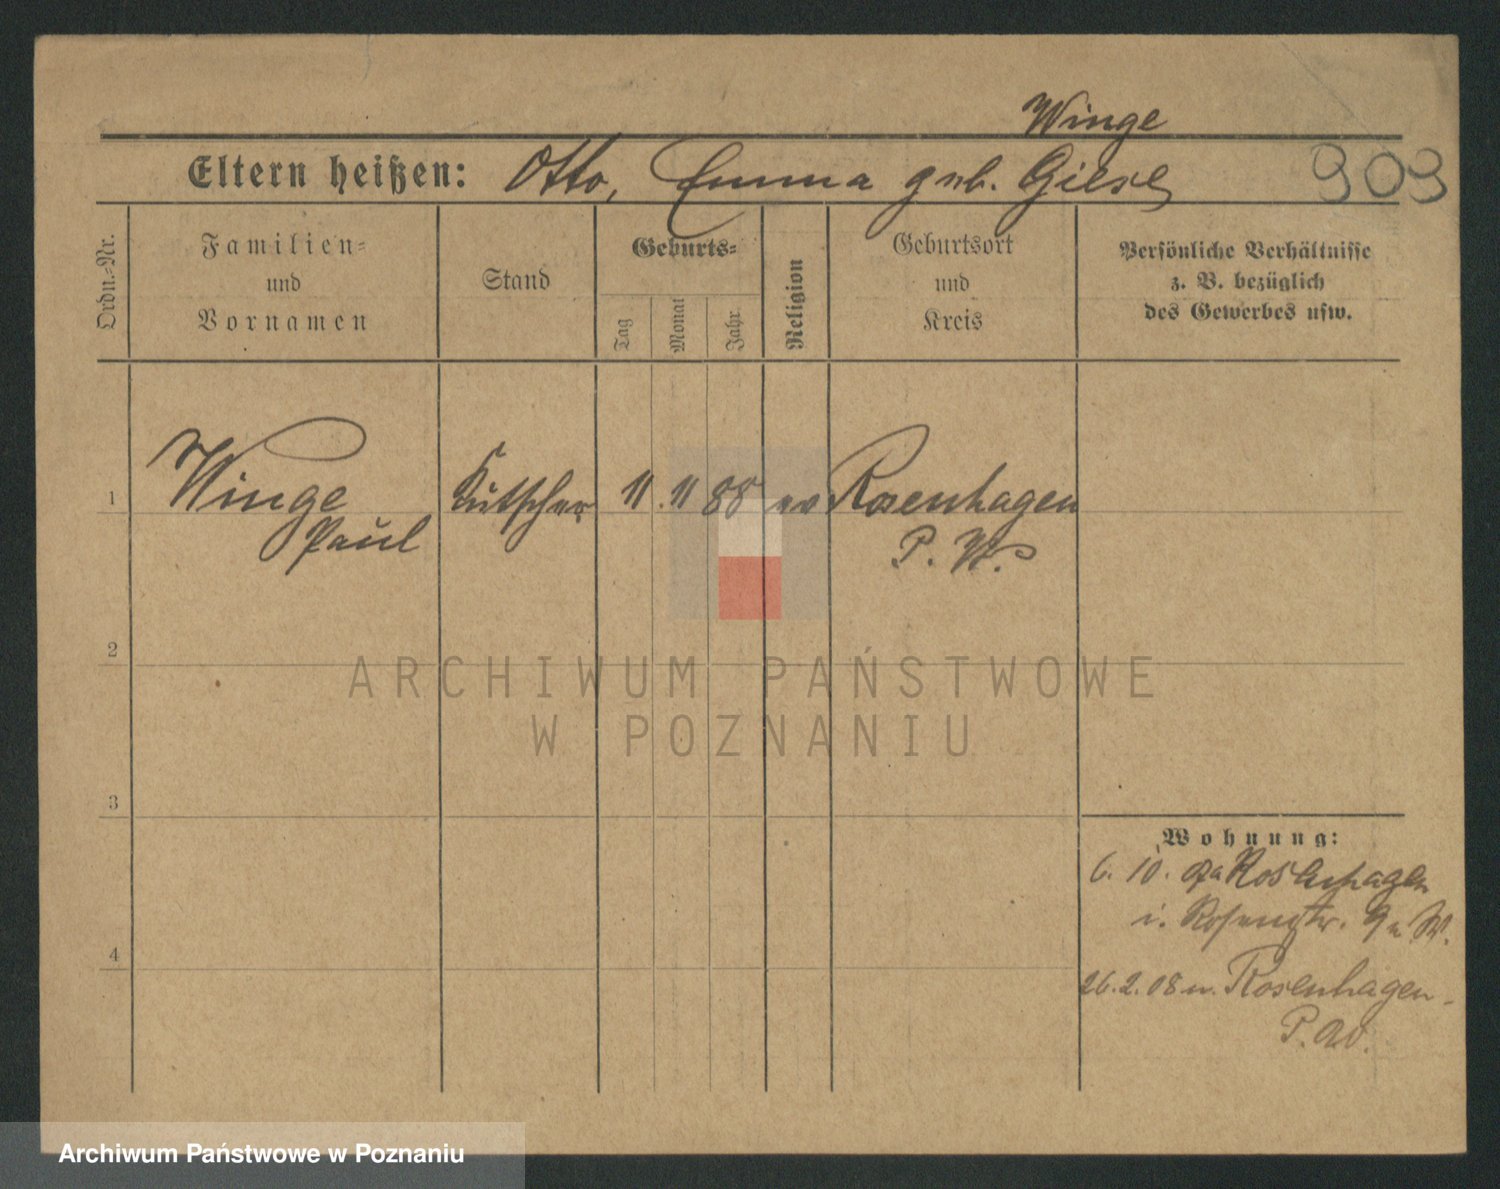 Winge
Eltern heißen: Otto, Emma geb. Giese
909
Ordn.-Nr.
Familien-
und
Vornamen
Stand
Geburts-
Tag
Monat
Jahr
Religion
Geburtsort
und
Kreis
Persönliche Verhältnisse
z. B. bezüglich
des Gewerbes usw.
1 Winge Kutscher 11. 11 88 ev Rosenhagen
Paul P. W.
2
3
4
Wohnung:
6. 10. Rosenhagen
i. W.
26.2.08 n. Rosenhagen-
P. W.
ARCHIWUM PAŃSTWOWE
W POZNANIU
Archiwum Państwowe w Poznaniu